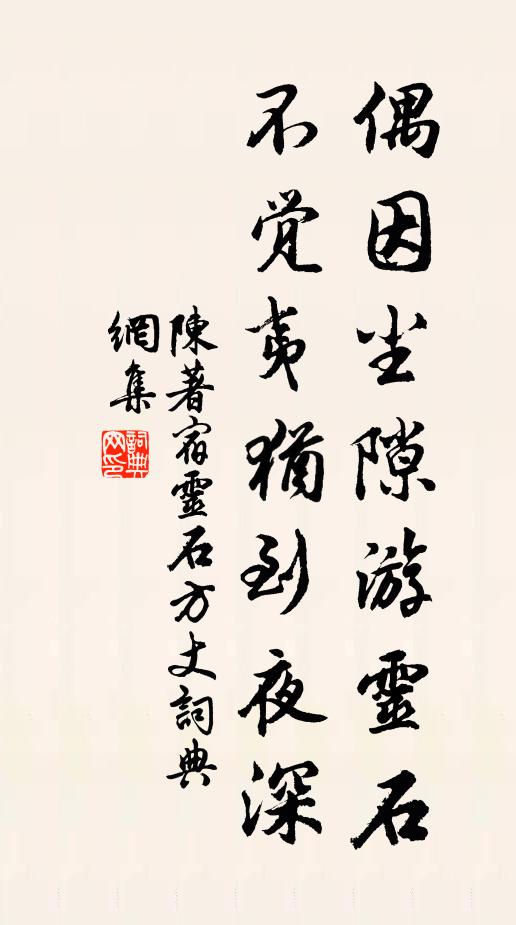 偶因尘隙游靈石
不觉夷猶到夜深
陳著宿靈石方丈詞典
網集
詞典网印